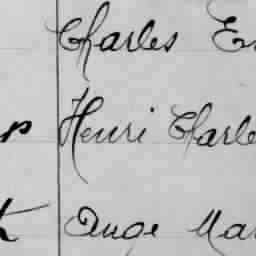 Charles E
p Henri Charle
t Ange Mar